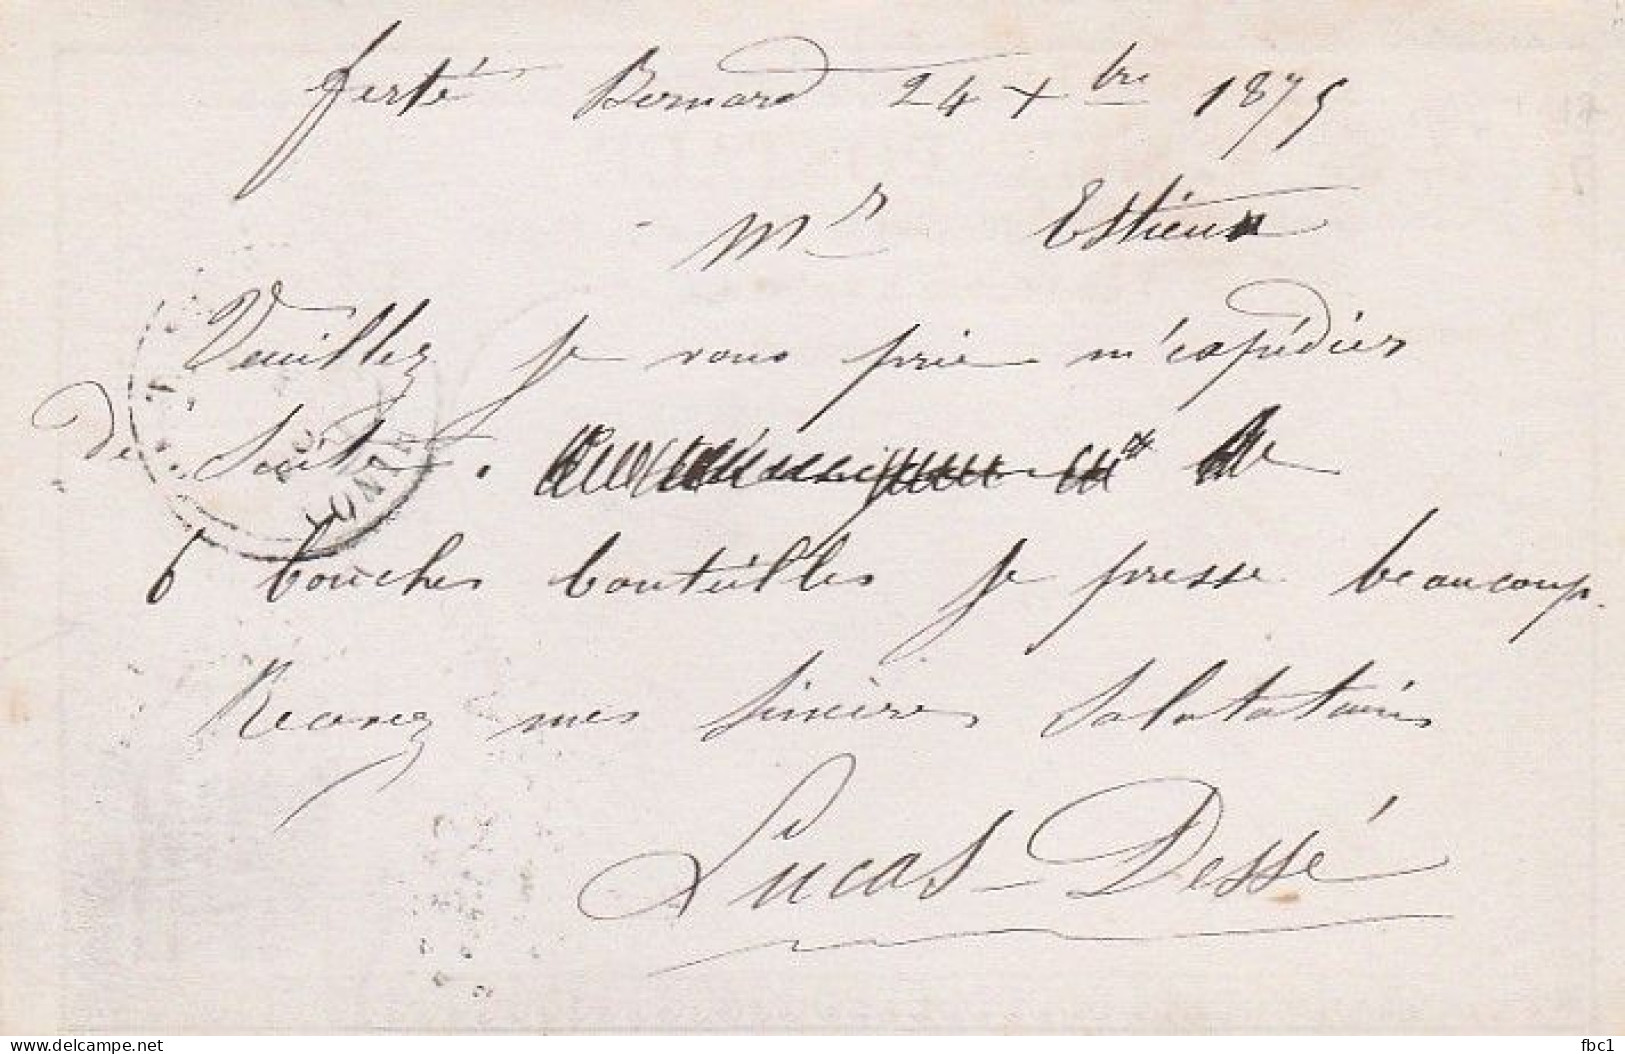 ferté Bernard 24 Xbre 1875
Mr Estieux
Veuillez je vous prie m'expédier
de suite.
6 bouches bouteilles je presse beaucoup.
Recevez mes sincères salutations
Lucas-Dessé
delcampe.net
fbc1